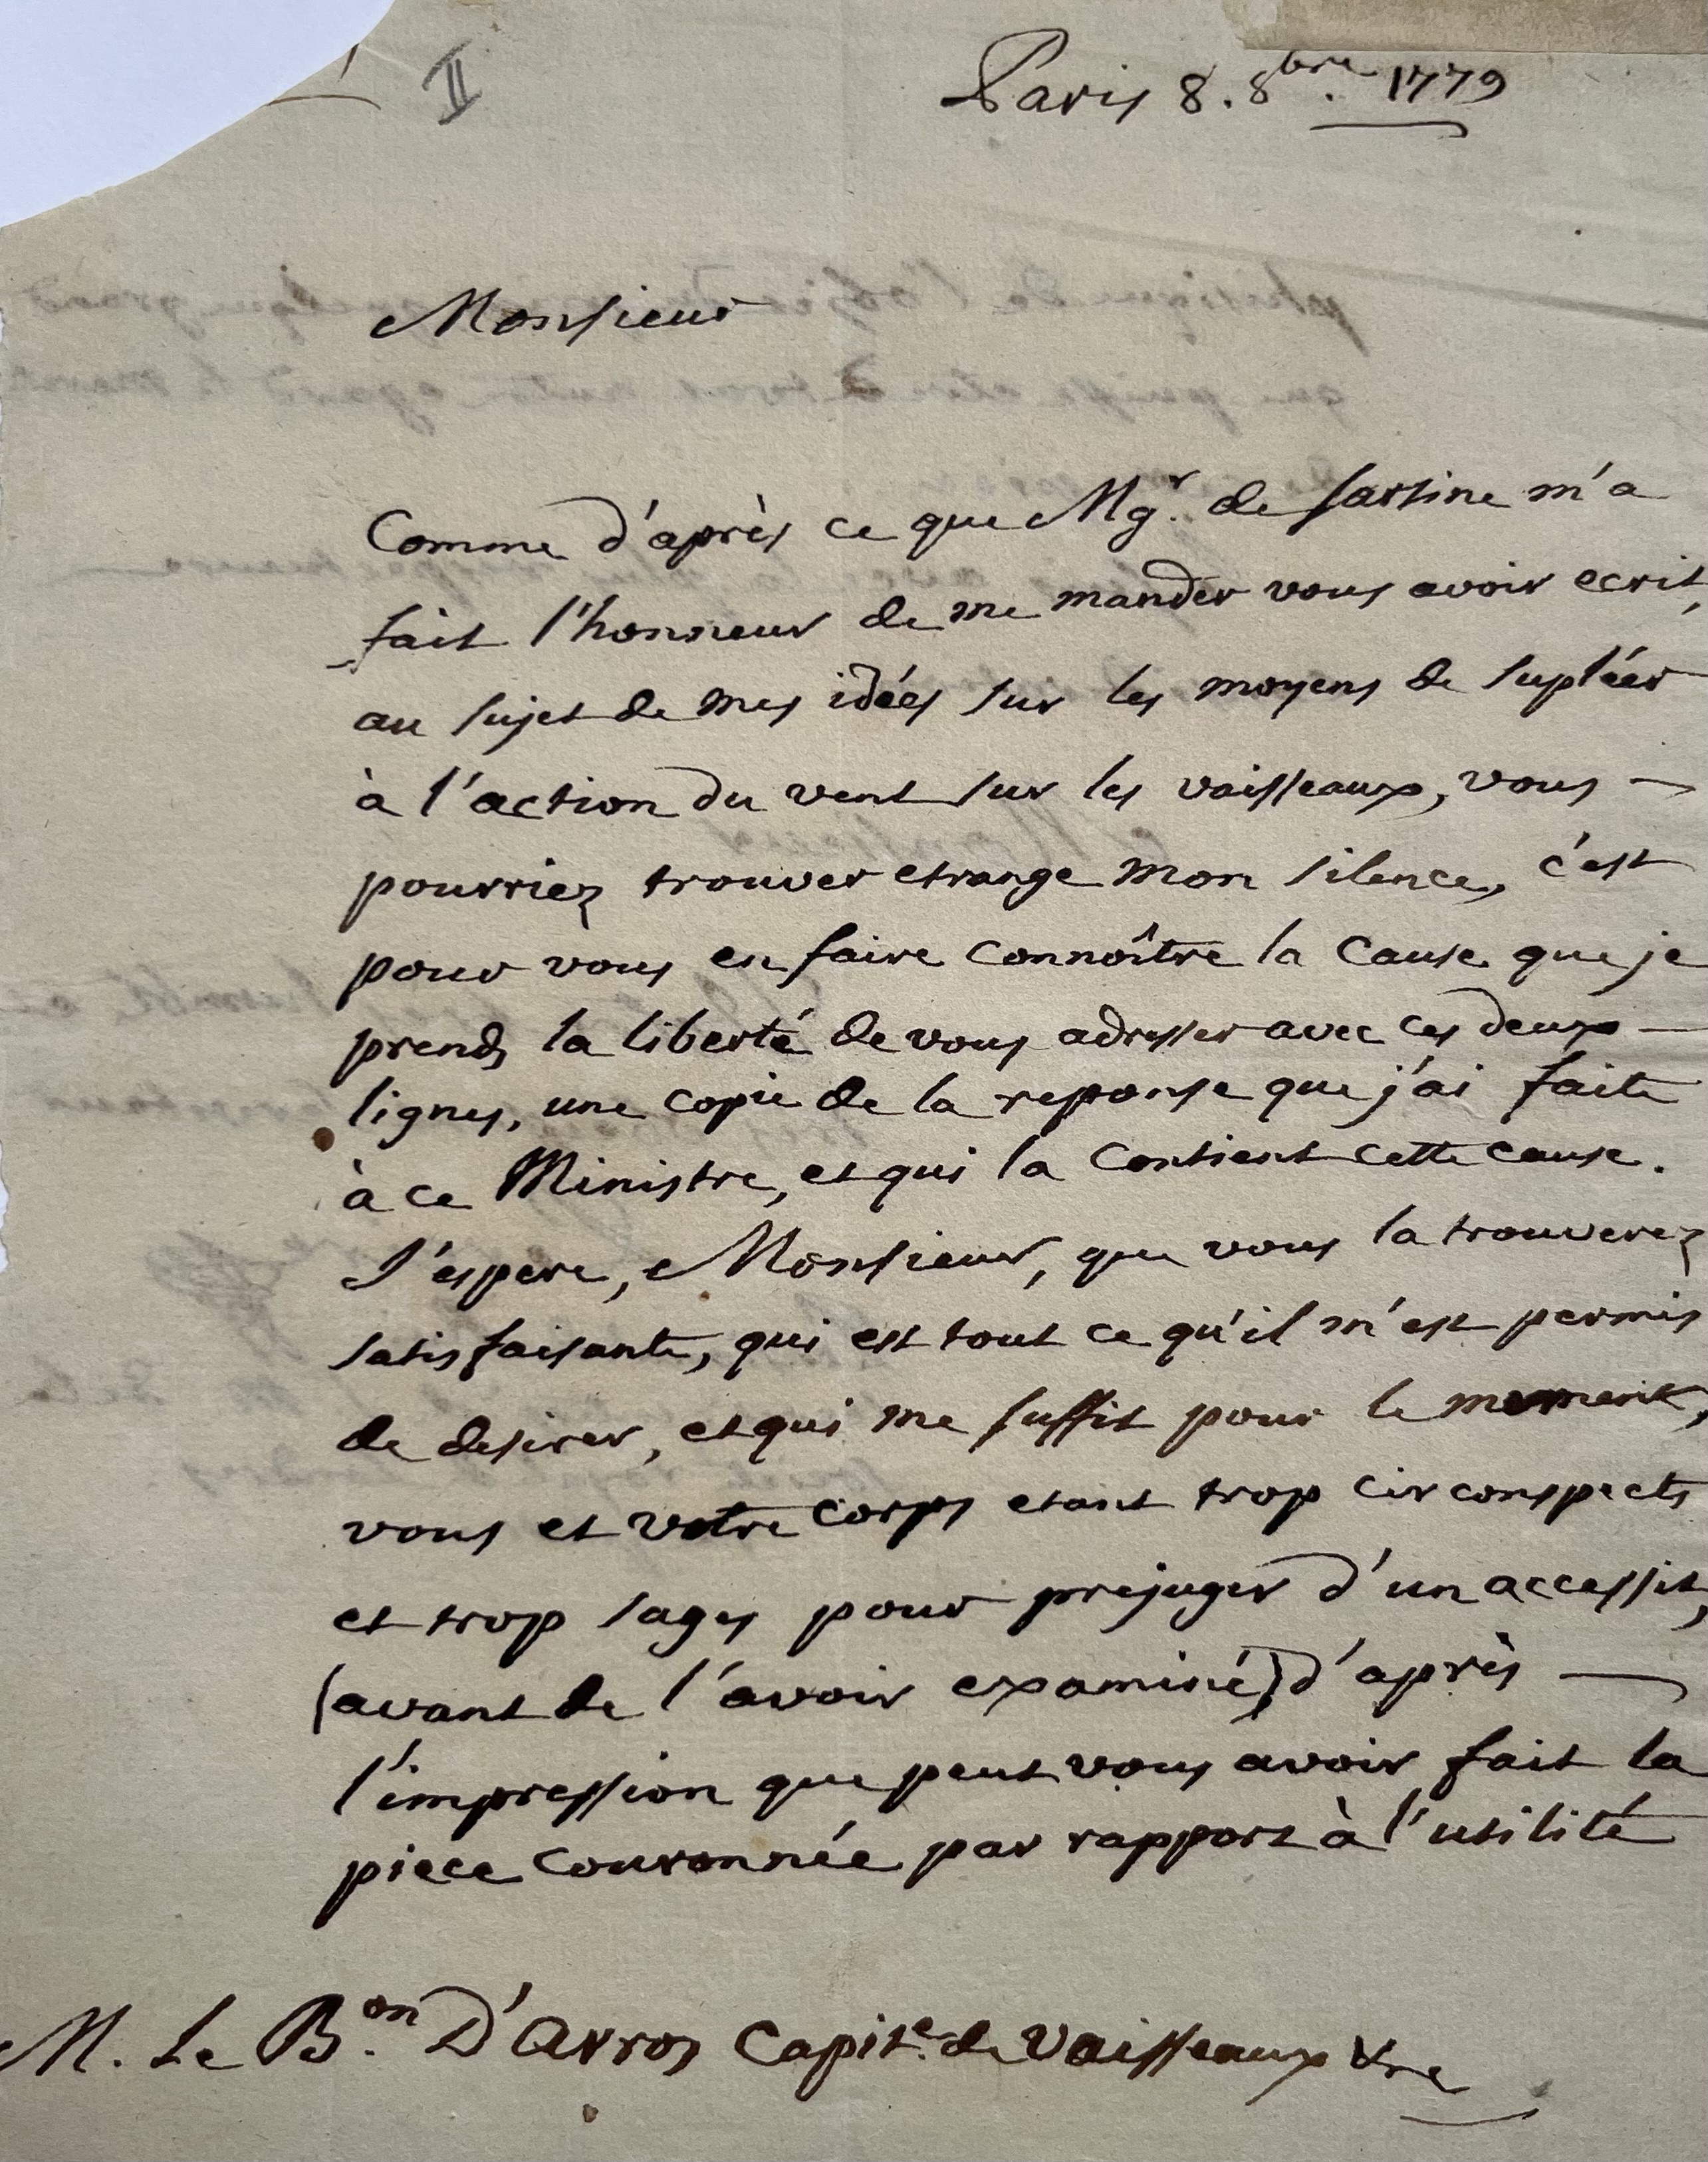 II
Paris 8. 8bre. 1779
Monsieur
Comme d'après ce que Mgr. de Sartine m'a
fait l'honneur de me mander vous avoir ecrit,
au sujet de mes idées sur les moyens de supléer
à l'action du vent sur les vaisseaux, vous —
pourriez trouver etrange mon silence, c'est
pour vous en faire connoître la cause que je
prends la liberté de vous adresser avec ces deux —
lignes, une copie de la reponse que j'ai faite
à ce Ministre, et qui la contient cette cause.
J'espere, Monsieur, que vous la trouverez
satisfaisante, qui est tout ce qu'il m'est permis
de desirer, et qui me suffit pour le moment,
vous et votre corps etant trop circonspects
et trop sages pour prejuger d'un accessit,
(avant de l'avoir examiné) d'après —
l'impression que peut vous avoir fait la
piece couronnée par rapport à l'utilité
M. Le Bon. D'Arros Capite. de Vaisseaux &re